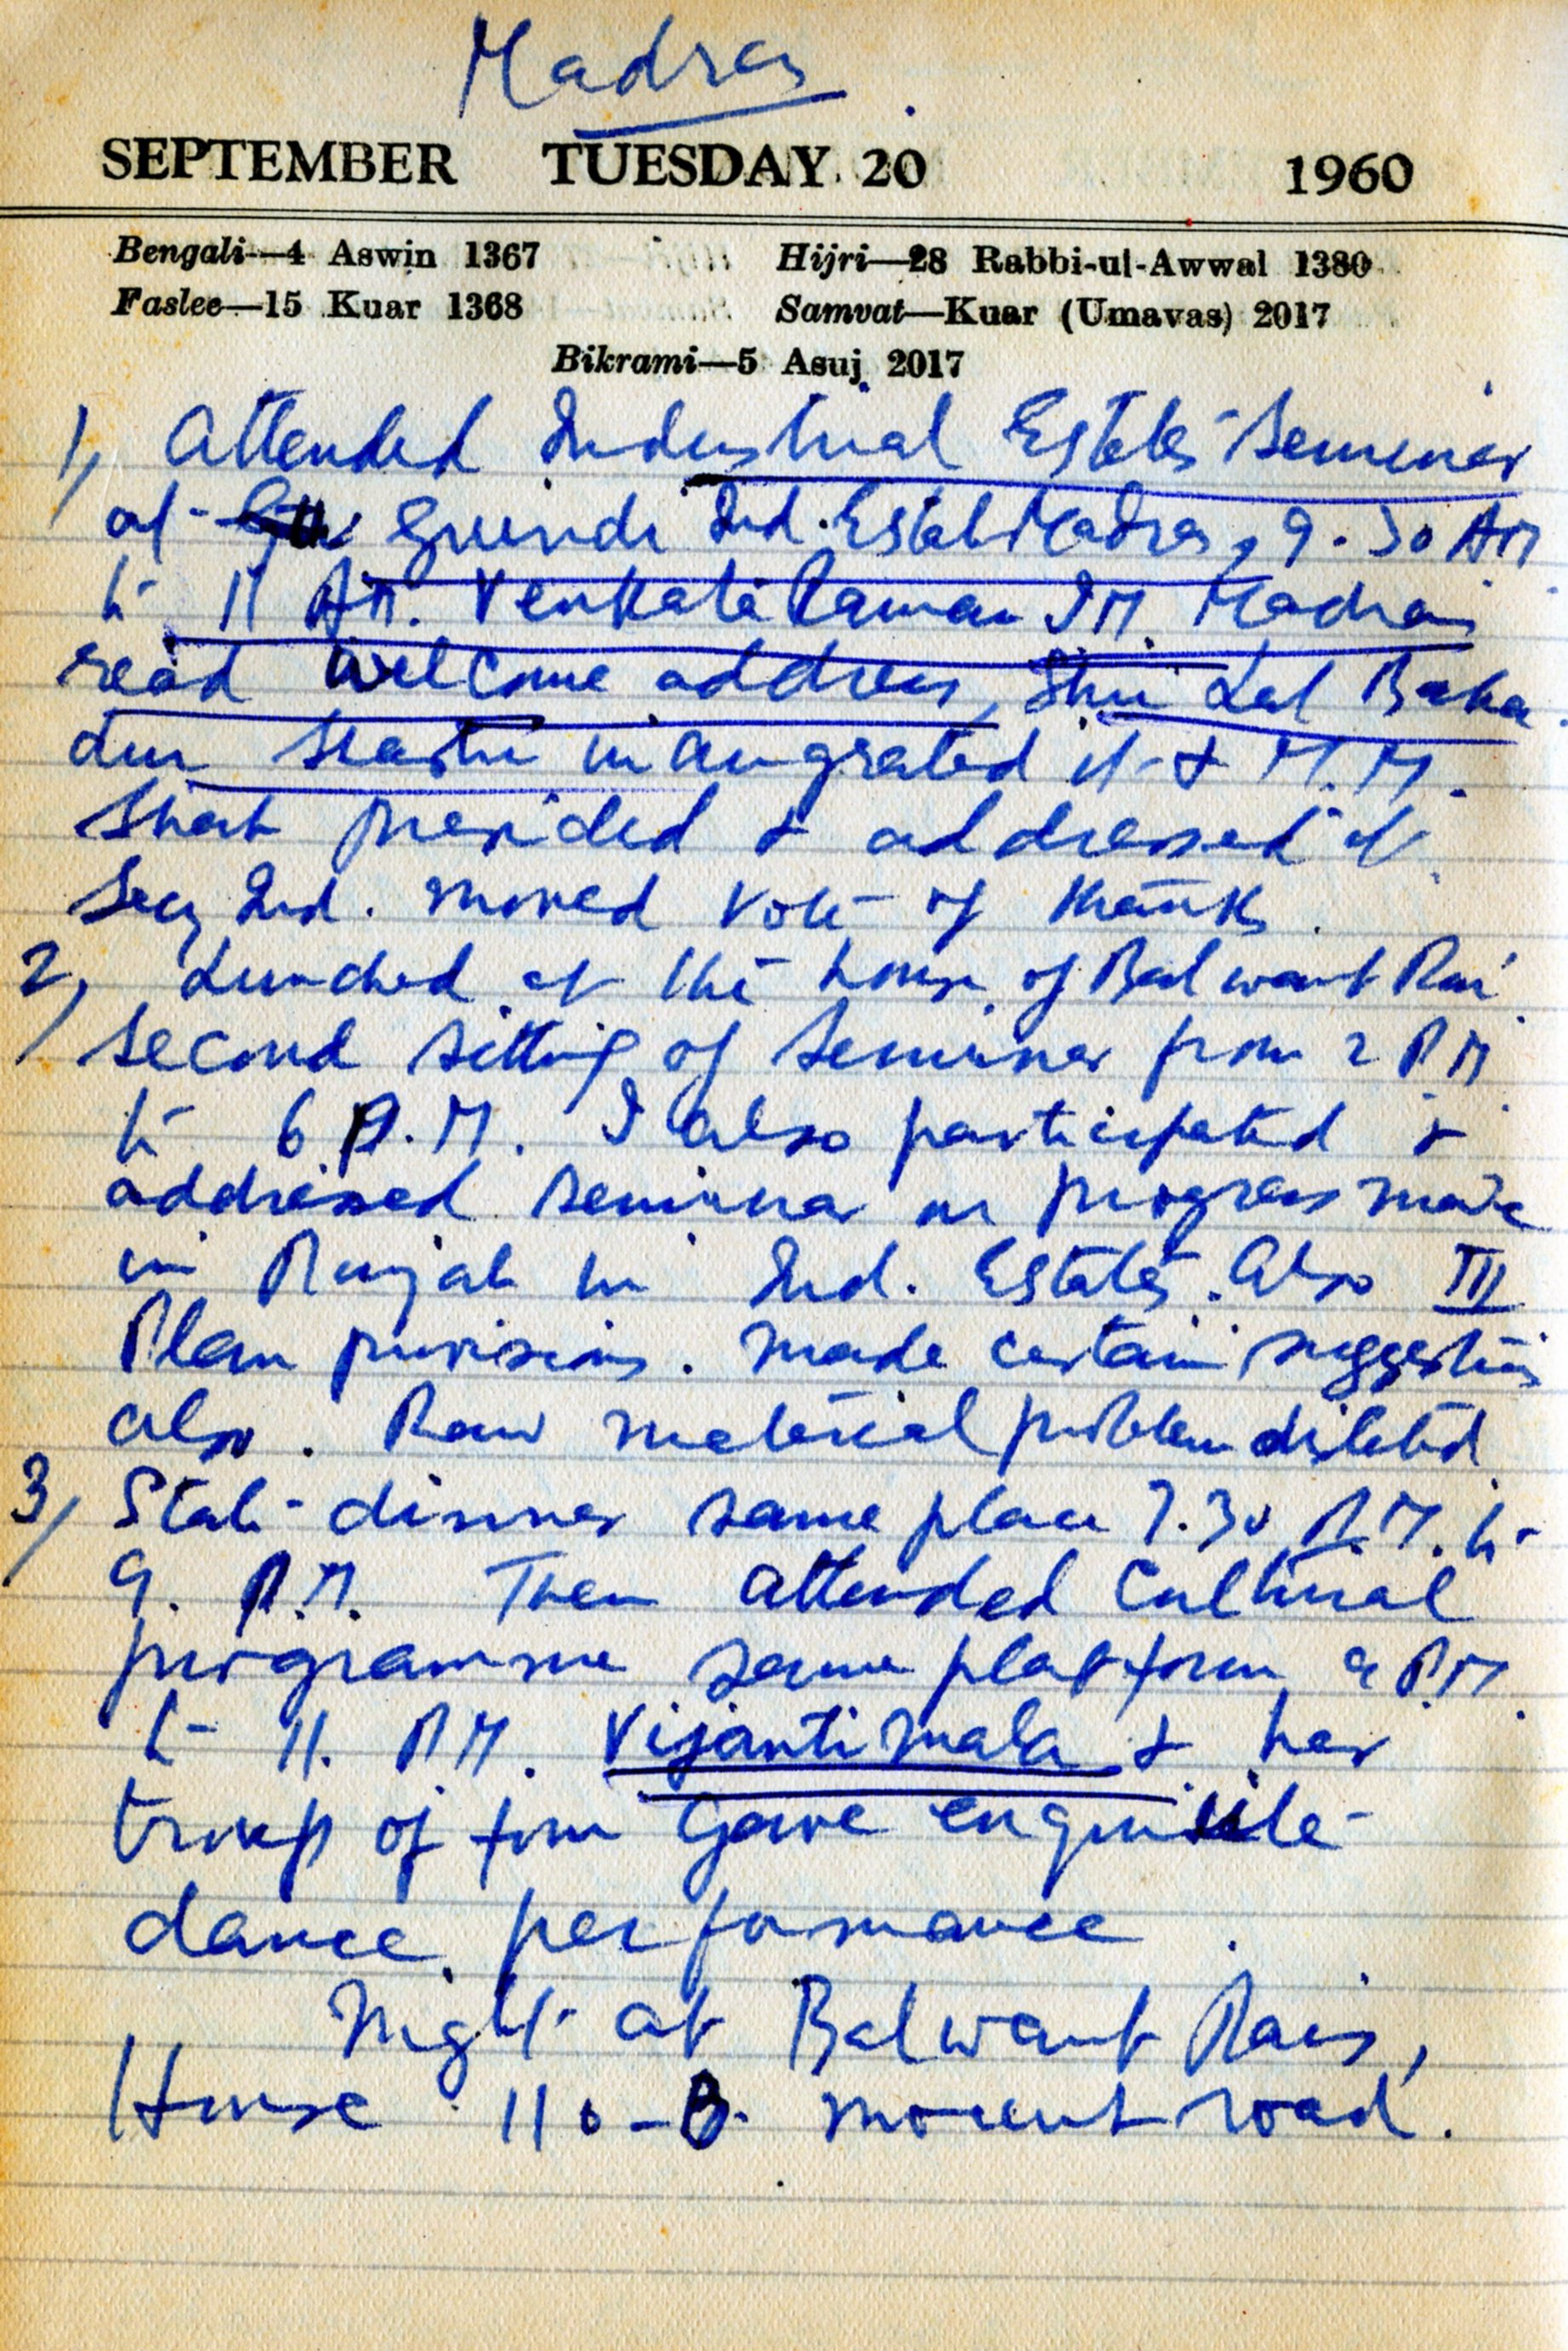 Madras
SEPTEMBER TUESDAY 20 1960
Bengali—4 Aswin 1367 Hijri—28 Rabbi-ul-Awwal 1380
Faslee—15 Kuar 1368 Samvat—Kuar (Umavas) 2017
Bikrami—5 Asuj 2017
1, Attended Industrial Estates Seminar
at Guindi Ind. Estate Madras, 9.30 AM
to 11 AM. Venkata Raman I.M. Madras
read welcome address, Shri Lal Baha
dur Shastri inaugrated it & M.M.
Shah presided & addressed it
Secy Ind. moved vote of thanks.
2, Lunched at the house of Balwant Rai
Second sitting of Seminar from 2 PM
to 6 P.M. I also participated &
addressed seminar on progress made
in Punjab in Ind. Estates. Also III
Plan provisions. Made certain suggestions
also. Raw material problem
3, State dinner same place 7.30 P.M. to
9. P.M. Then attended Cultural
programme same platform 9 P.M.
to 11. P.M. Vijantimala & her
troup of four gave exquisite
dance performance.
Night at Balwant Rais,
House 110-B. Mount road.